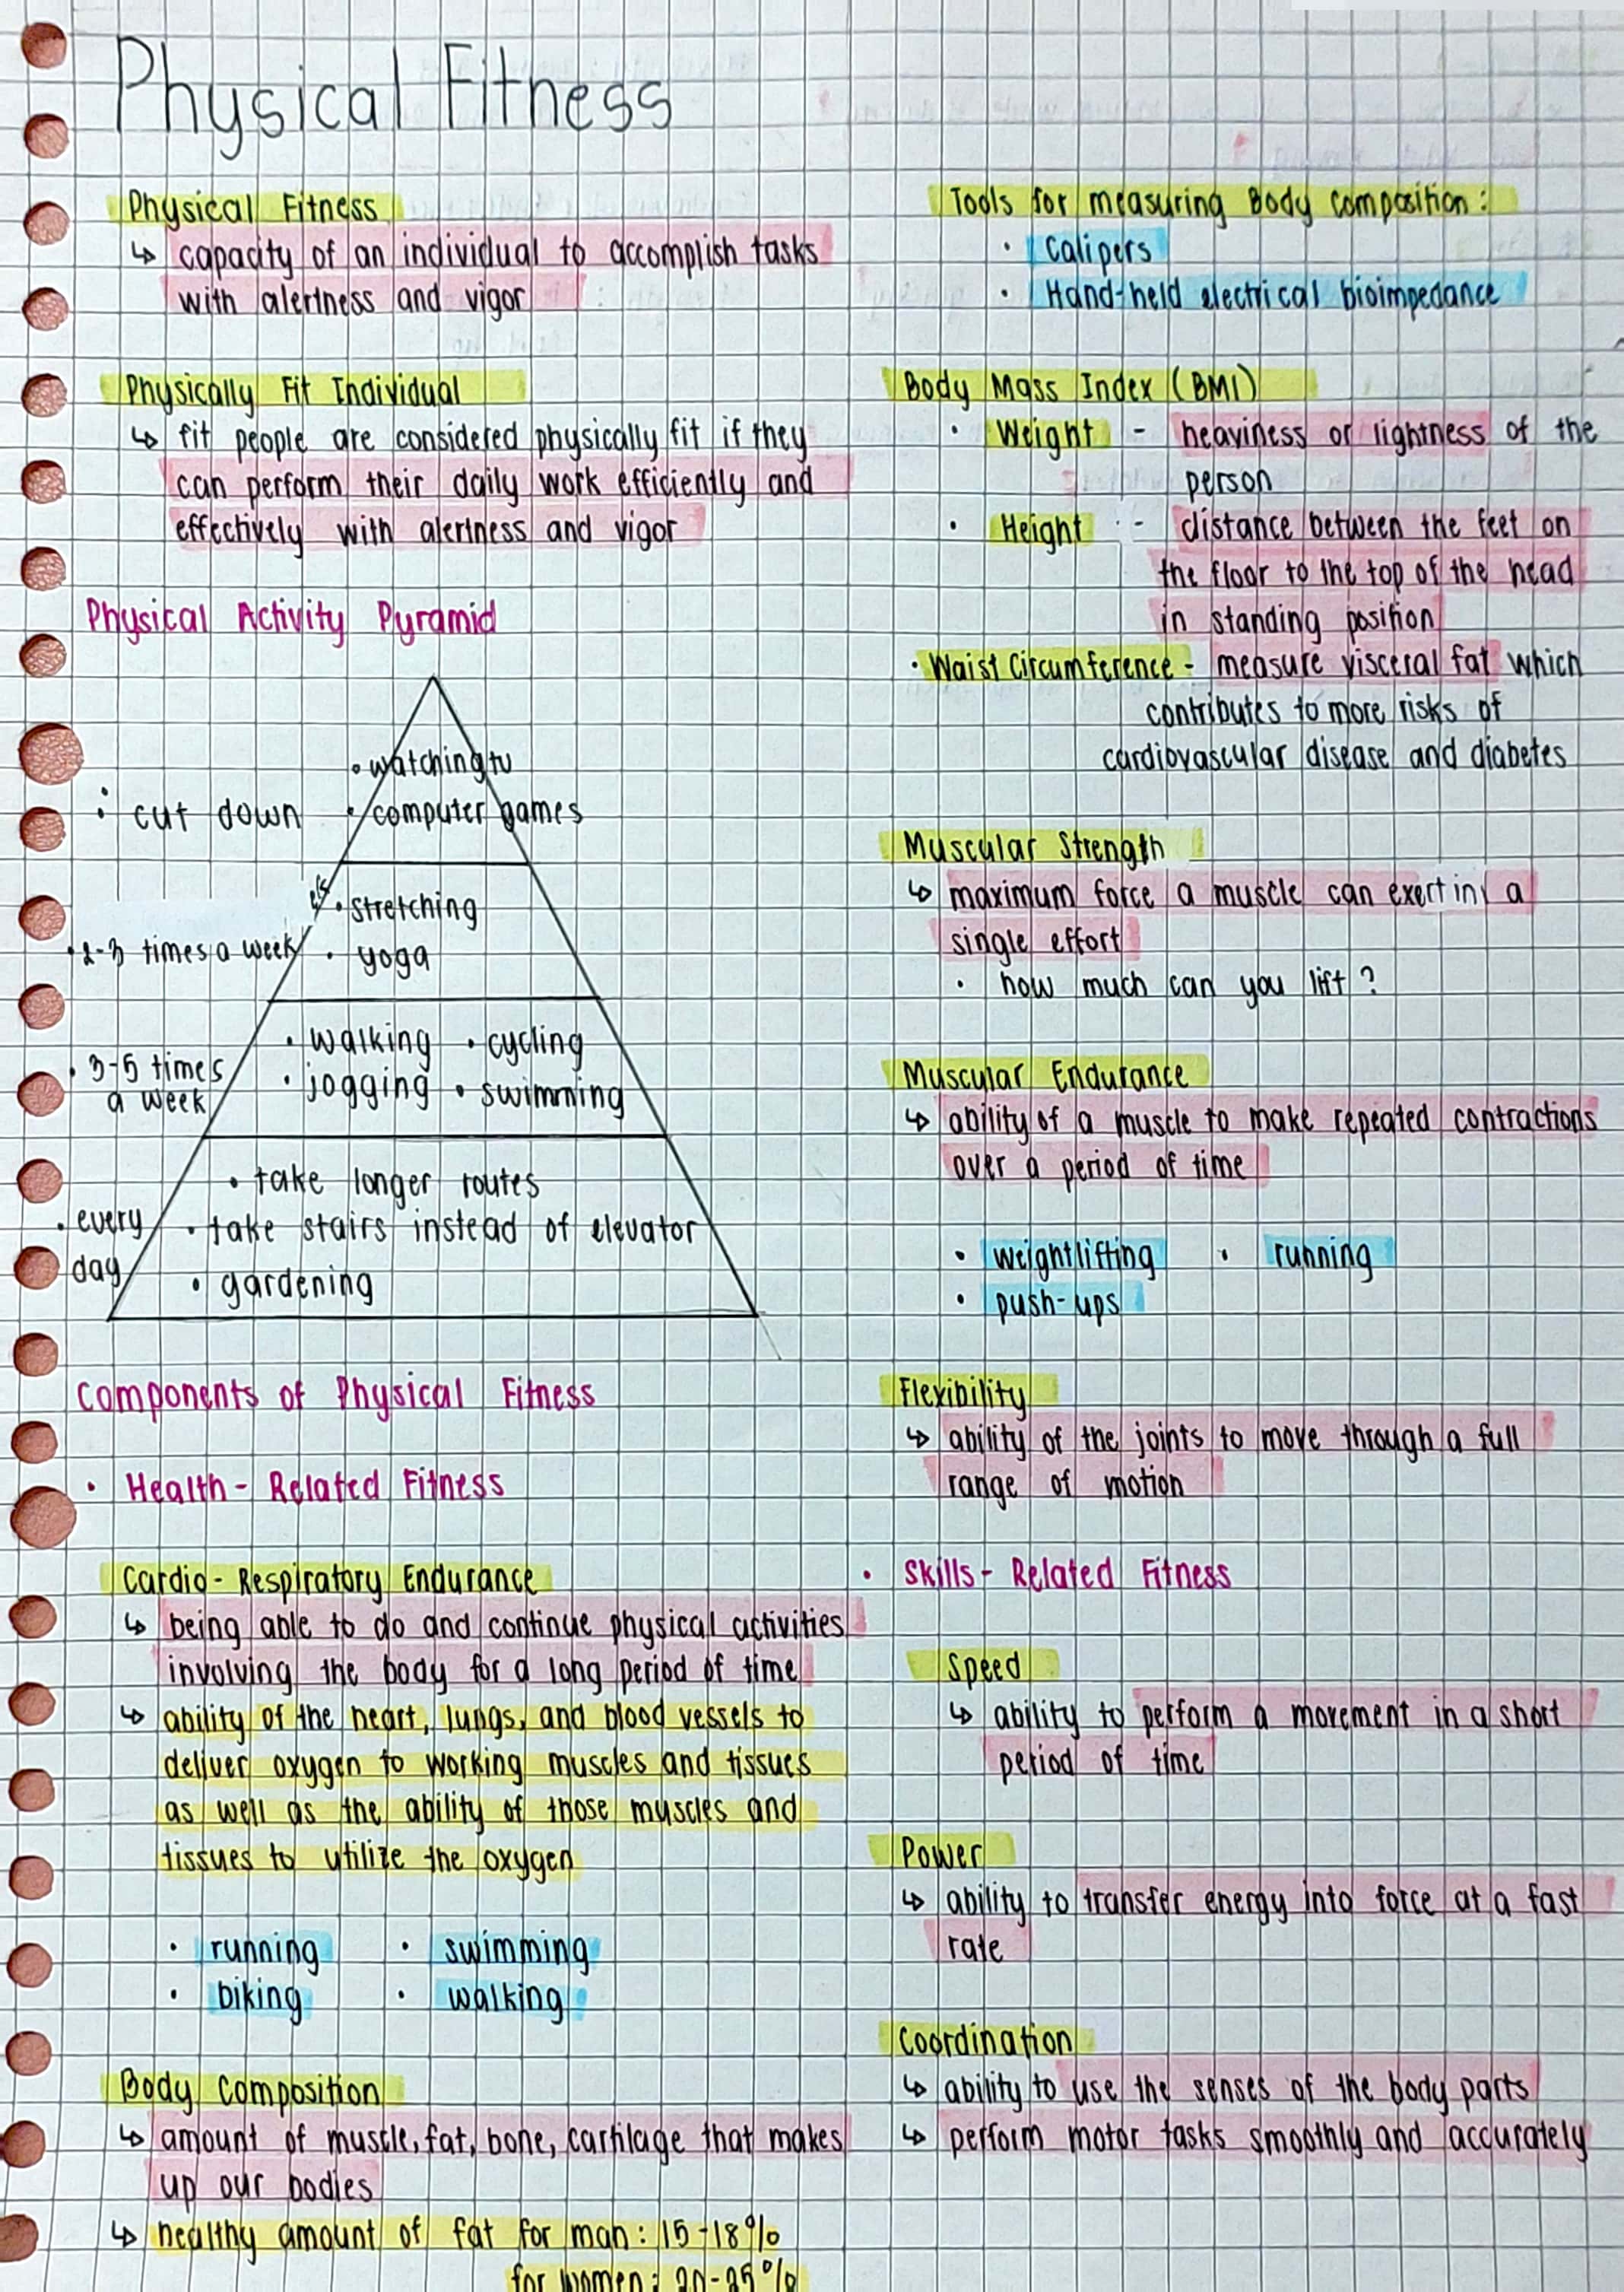 Physical Fitness
Physical Fitness
↳ capacity of an individual to accomplish tasks
with alertness and vigor
Physically Fit Individual
↳ fit people are considered physically fit if they
can perform their daily work efficiently and
effectively with alertness and vigor
Physical Activity Pyramid
• watching tv
• cut down • computer games
• stretching
• 2-3 times a week • yoga
• walking • cycling
• 3-5 times
a week
• jogging • swimming
• take longer routes
• every
day
• take stairs instead of elevator
• gardening
Components of Physical Fitness
• Health-Related Fitness
Cardio-Respiratory Endurance
↳ being able to do and continue physical activities
involving the body for a long period of time
↳ ability of the heart, lungs, and blood vessels to
deliver oxygen to working muscles and tissues
as well as the ability of those muscles and
tissues to utilize the oxygen
• running • swimming
• biking • walking
Body Composition
↳ amount of muscle, fat, bone, cartilage that makes
up our bodies
↳ healthy amount of fat for man: 15-18%
for women: 20-25%
Tools for measuring Body Composition:
• Calipers
• Hand-held electrical bioimpedance
Body Mass Index (BMI)
• Weight - heaviness or lightness of the
person
• Height - distance between the feet on
the floor to the top of the head
in standing position
• Waist Circumference - measure visceral fat which
contributes to more risks of
cardiovascular disease and diabetes
Muscular Strength
↳ maximum force a muscle can exert in a
single effort
• how much can you lift?
Muscular Endurance
↳ ability of a muscle to make repeated contractions
over a period of time
• weightlifting • running
• push-ups
Flexibility
↳ ability of the joints to move through a full
range of motion
• Skills-Related Fitness
Speed
↳ ability to perform a movement in a short
period of time
Power
↳ ability to transfer energy into force at a fast
rate
Coordination
↳ ability to use the senses of the body parts
↳ perform motor tasks smoothly and accurately